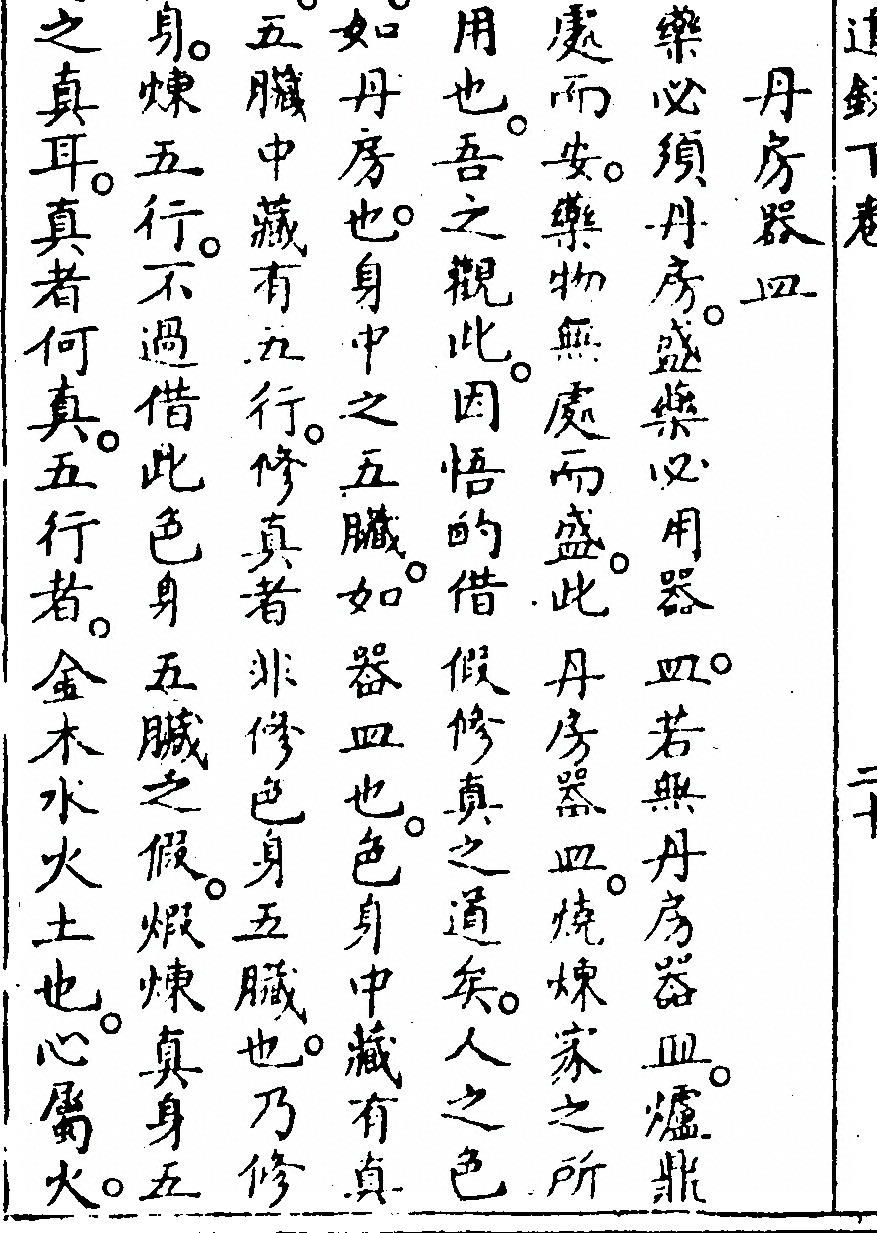 道錄下卷
二十
丹房器皿
藥必須丹房。盛藥必用器皿。若無丹房器皿。爐鼎
處而安。藥物無處而盛。此丹房器皿。燒煉家之所
用也。吾之觀此。因悟的借假修真之道矣。人之色
如丹房也。身中之五臟。如器皿也。色身中藏有真
五臟中藏有五行。修真者非修色身五臟也。乃修
身。煉五行。不過借此色身五臟之假。煅煉真身五
之真耳。真者何真。五行者。金木水火土也。心屬火。